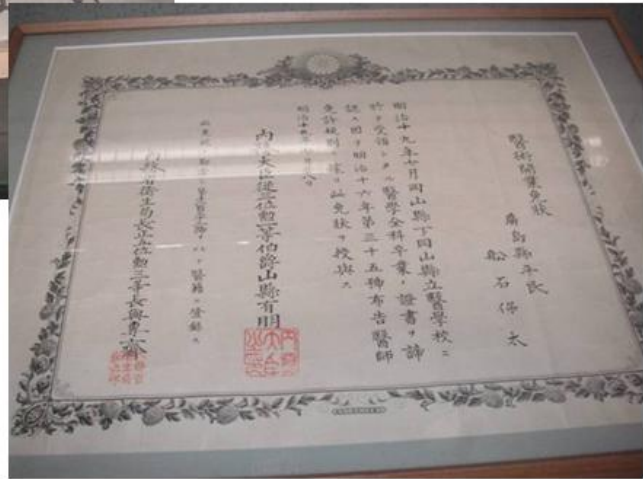 醫術開業免狀
廣島縣平民
船石保太
明治十九年七月岡山縣下岡山縣立醫學校ニ
於テ受領シタル醫學全科卒業ノ證書ヲ諦
認シ因テ明治十六年第三十五号布告醫師
免許規則ニ依リ此免狀ヲ授與ス
明治十九年
内務大臣從三位勲一等伯爵山縣有朋
醫籍ニ登録ス
衛生局長正五位勲三等長與專齋